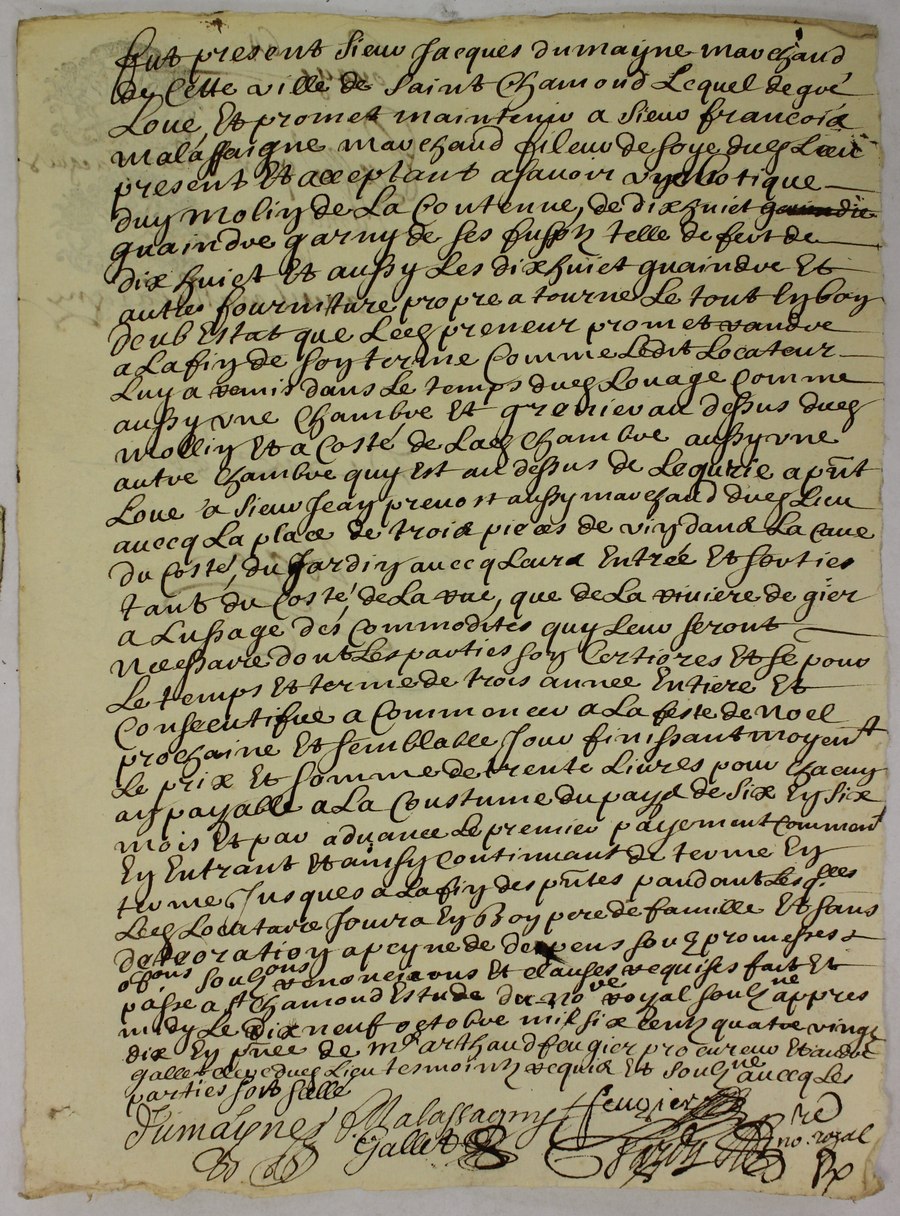 fut present Sieur Jacques dumayne marchand
de Cette ville de Saint Chamond Lequel de gré
Loue, Et promet maintenir a Sieur francois
malassaigne marchand fileur de soye dud Lieu
present Et acceptant asavoir
duy moliy de La Contenue, de dixhuict
guaindre garny de ses telle de fert de
dixhuict Et aussy Les dixhuict guaindre Et
autres fourniture propre a tourne Le tout Ey boy
Estat que Led preneur promet randre
a La fiy de soy terme Comme Ledit Locateur
Luy a remis dans Le temps dud Louage Comme
aussy une Chambre Et grenier au dessus dud
molliy Et a Costé de Lad Chambre aussy une
autre Chambre quy Est au dessus de Lequrie a pnt
Loue a Sieur Jeay prevost aussy marchand dud Lieu
avecq La place de trois pieces de viy dans La Cave
du Costé, du Jardiy avecq Leurs Entrée Et sorties
tant du Costé, de La rue, que de La riviere de gier
a Lussage des Commodités quy Leur seront
necessaire dont Les parties soy Certiores Et se pour
Le temps Et terme de trois année Entiere Et
Consecutifve a Commencer a La feste de noel
prochaine Et semblable Jour finissant moyent
Le prix Et somme de trente Livres pour Chacuy
ay payable a La Coustume du pays de Six Ey Six
mois Et par advance Le premier payement
Ey Entrant Et ainsy Continuant de terme Ey
terme Jusques a La fiy des pntes pandant Les qlles
Led Locataire Jouira Ey Boy pere de famille Et sans
detioratioy a peyne de despens soubz promesses
obons renonciaons Et clauses requises fait Et
passe a St Chamond Estude du nore royal soubzne appres
midy Le dix neuf octobre mil six Centz quatre vingtz
dix Ey pnce de mr arthaud feugier procureur Et
gallet dud Lieu tesmointz requis Et soubzne avecq Les
parties
Dumaynes Malassagny feugier
Gallet no. royal